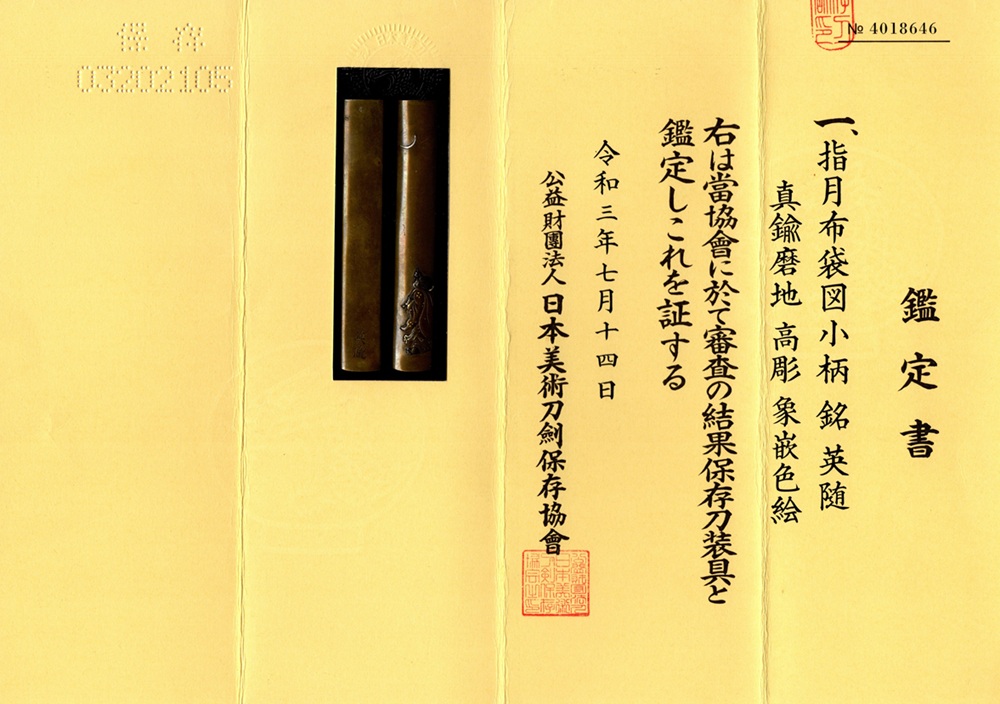 № 4018646
鑑定書
一、指月布袋図小柄 銘 英随
真鍮磨地 高彫 象嵌色絵
右は當協會に於て審査の結果保存刀装具と
鑑定しこれを証する
令和三年七月十四日
公益財團法人 日本美術刀劍保存協會
保存
03202105